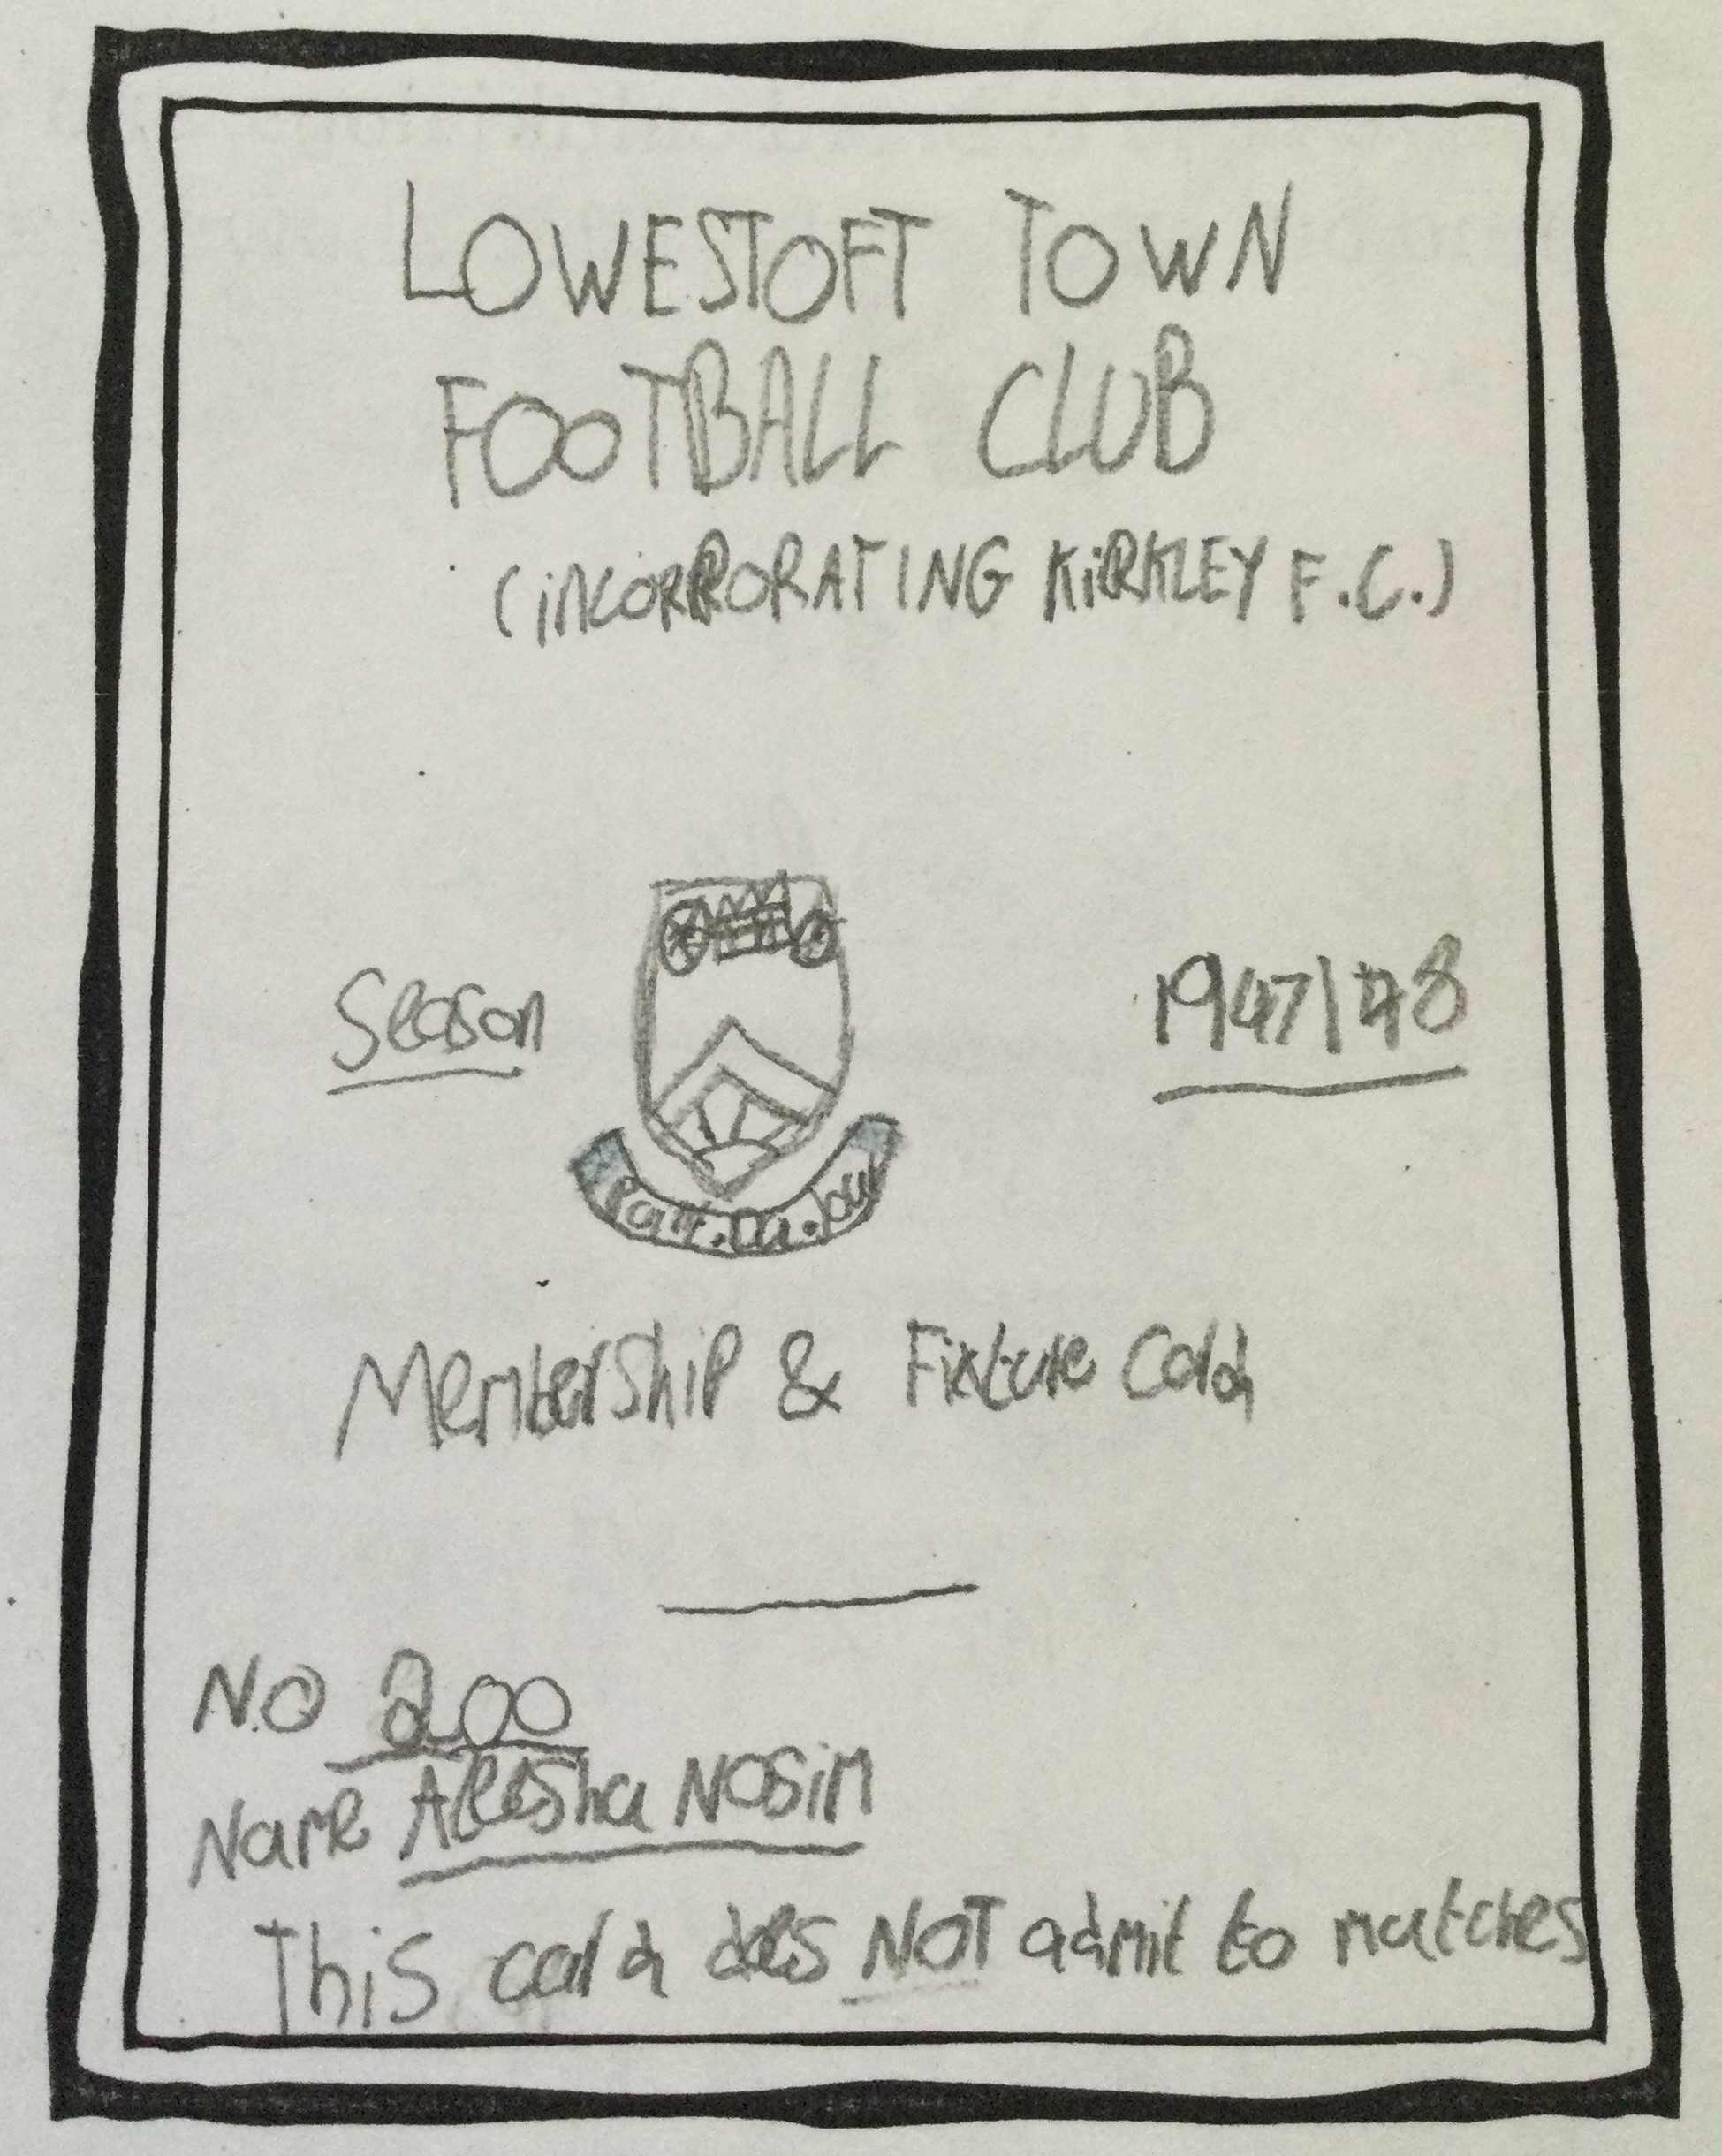 LOWESTOFT TOWN
FOOTBALL CLUB
(iNCORPORATING KiRKLEY F.C.)
Season 1947/48
Point.Du.Jour
Membership & Fixture Card
N.O 200
Name Aleesha Nosim
This card does NOT admit to matches